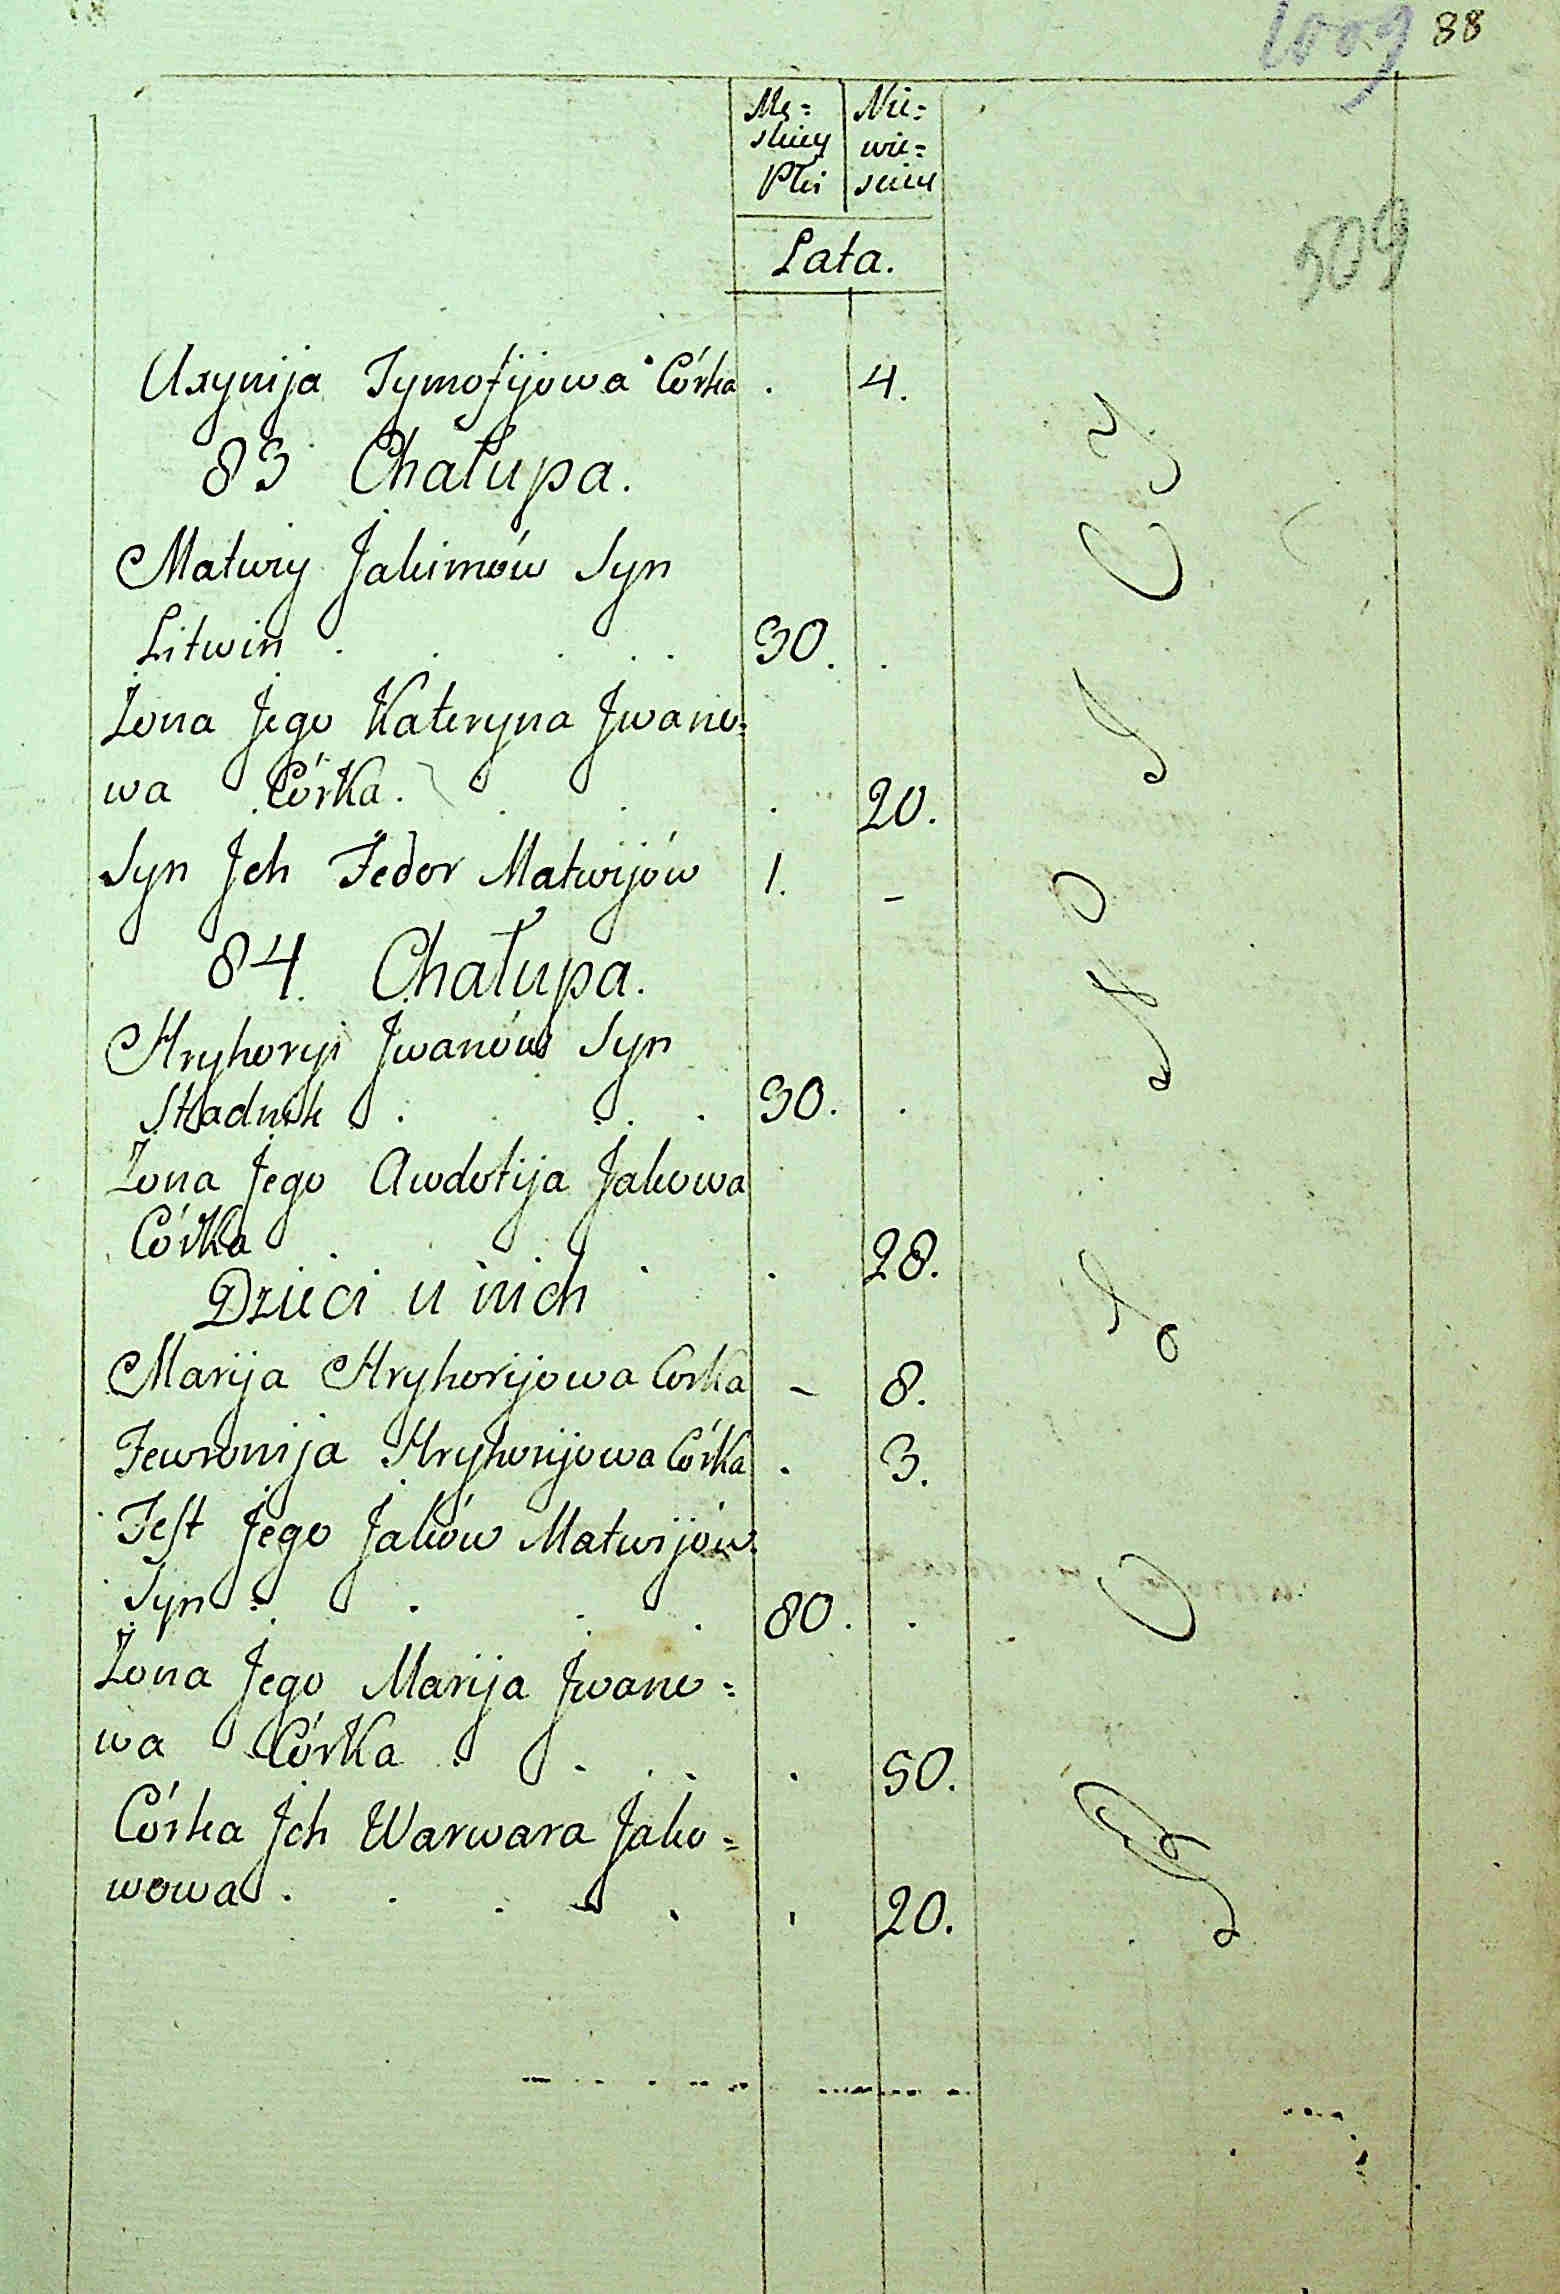 1009 88
Mę=
skiey
Płci
Nie=
wie=
sciey
Lata.
509
Uxynija Tymofijowa Córka . 4.
83 Chałupa.
Matwiy Jakimów Syn
Litwin . . . . . 30. .
Żona Jego Kateryna Jwano=
wa Córka. . . . 20.
Syn Jch Fedor Matwijów 1. -
84. Chałupa.
Hryhoryi Jwanów Syn
Skadnik . . . . 30. .
Żona Jego Awdotija Jakowa
Córka . . . . 28.
Dzieci u nich
Marija Hryhorijowa Corka - 8.
Fewronija Hryhorijowa Córka . 3.
Test Jego Jaków Matwijów
Syn . . . . 80. .
Żona Jego Marija Jwano=
wa Córka . . . . . 50.
Córka Jch Warwara Jako=
wowa . . . . . . 20.